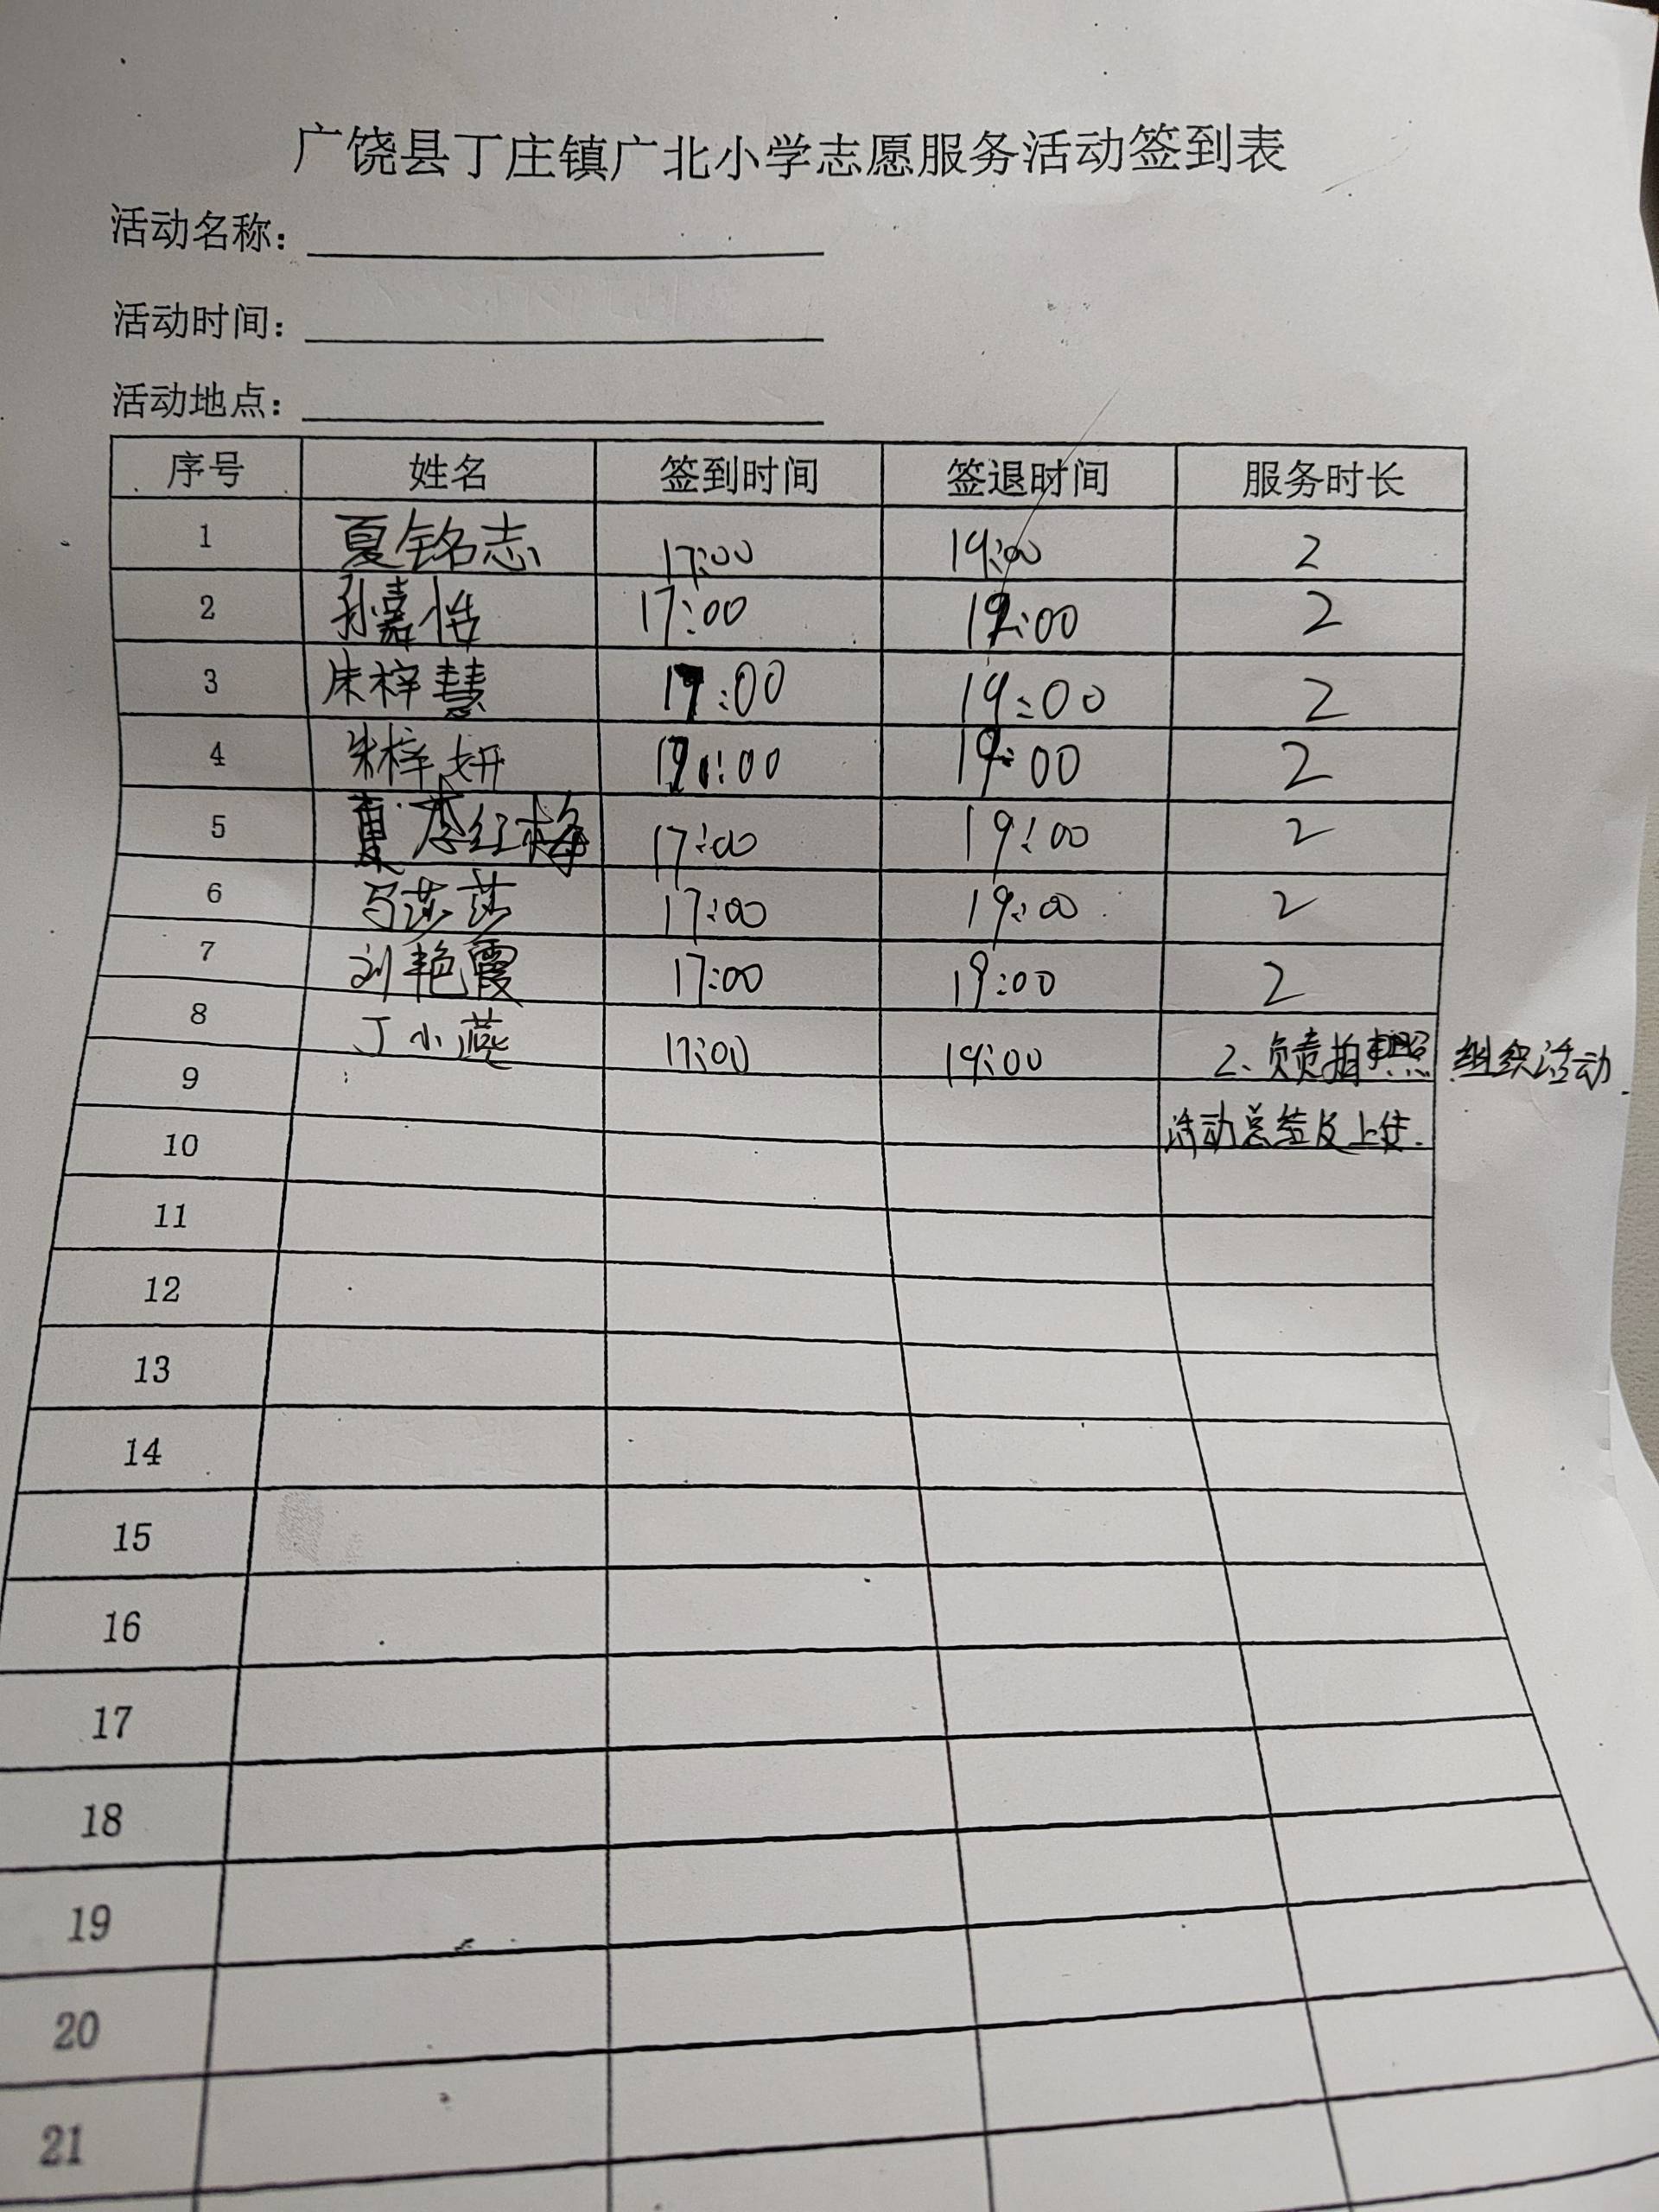 广饶县丁庄镇广北小学志愿服务活动签到表
活动名称：
活动时间：
活动地点：
序号 姓名 签到时间 签退时间 服务时长
1 夏铭志 17:00 19:00 2
2 孙嘉浩 17:00 19:00 2
3 朱梓慧 17:00 19:00 2
4 朱梓妍 17:00 19:00 2
5 李红梅 17:00 19:00 2
6 马莎莎 17:00 19:00 2
7 刘艳霞 17:00 19:00 2
8 丁小燕 17:00 19:00 2、负责拍照 组织活动
9 活动总结及上传.
10
11
12
13
14
15
16
17
18
19
20
21